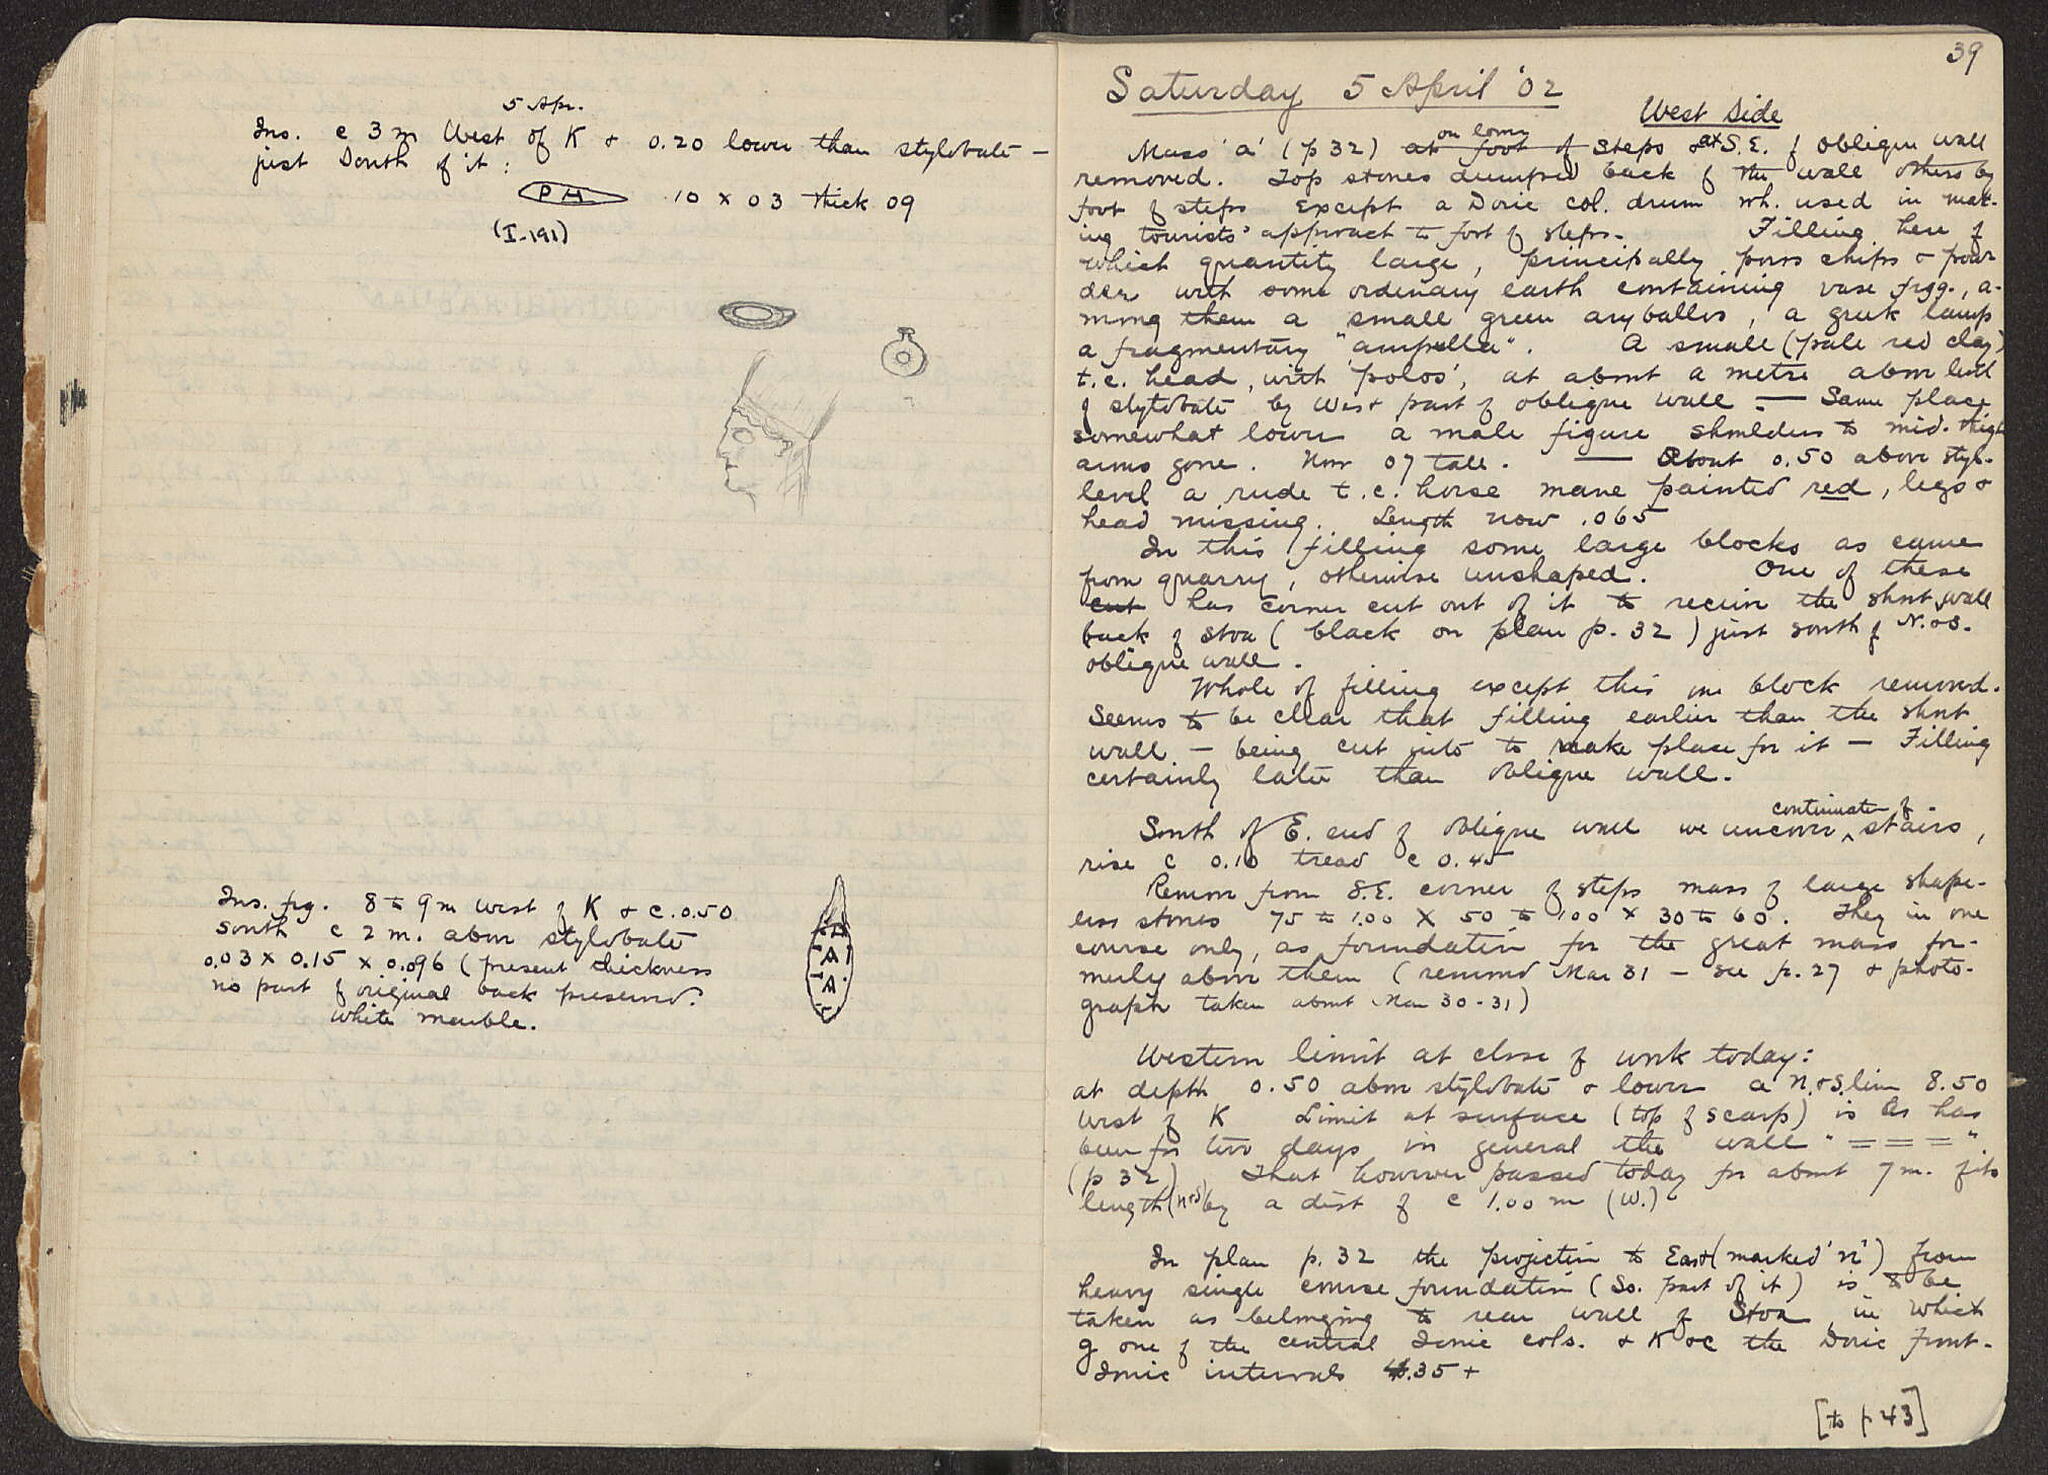 5 Apr.
Ins. c 3 m West of K + 0.20 lower than stylobate —
just South of it:
PH .10 x 03 thick 09
(I-191)
Ins. frg. 8 to 9 m west of K + c. 0.50
south c 2 m. above stylobate
0.03 x 0.15 x 0.096 (present thickness
no part of original back preserved.
white marble.
39
Saturday 5 April '02
West Side
Mass 'a' (p 32) at foot of on lower steps at S.E. of oblique wall
removed. Top stones dumped back of the wall others by
foot of steps except a Doric col. drum wh. used in mak-
ing tourists' approach to foot of steps. Filling here of
which quantity large, principally poros chips + pow-
der with some ordinary earth containing vase frgg., a-
mong them a small green aryballos, a greek lamp
a fragmentary "ampulla". A small (pale red clay)
t.c. head, with 'polos', at about a metre above level
of stylobate by West part of oblique wall — Same place
somewhat lower a male figure shoulders to mid-thigh
arms gone. Now 07 tall. — About 0.50 above styl-
level a rude t.c. horse mane painted red, legs +
head missing. Length now .065
In this filling some large blocks as came
from quarry, otherwise unshaped. One of these
cut has corner cut out of it to receive the short wall
back of stoa (black on plan p. 32) just south of N.+S.
oblique wall.
Whole of filling except this one block removed.
Seems to be clear that filling earlier than the short
wall — being cut into to make place for it — Filling
certainly later than oblique wall.
South of E. end of oblique wall we uncover continuation of stairs,
rise c 0.10 tread c 0.45
Remove from S.E. corner of steps mass of large shape-
less stones 75 to 1.00 x 50 to 100 x 30 to 60. They in one
course only, as foundation for the great mass for-
merly above them (removed Mar 31 — see p. 27 + photo-
graph taken about Mar 30-31)
Western limit at close of work today:
at depth 0.50 above stylobate + lower a N.+S. line 8.50
west of K Limit at surface (top of scarp) is as has
been for two days in general the wall " = = = "
(p 32) That however passed today for about 7 m. of its
length (n+s) by a dist of c 1.00 m (W.)
In plan p. 32 the projection to East (marked 'n') from
heavy single course foundation (So. part of it) is to be
taken as belonging to rear wall of Stoa in which
g one of the central Ionic cols. + K +c the Doric front.
Ionic intervals 4.35 +
[to p 43]